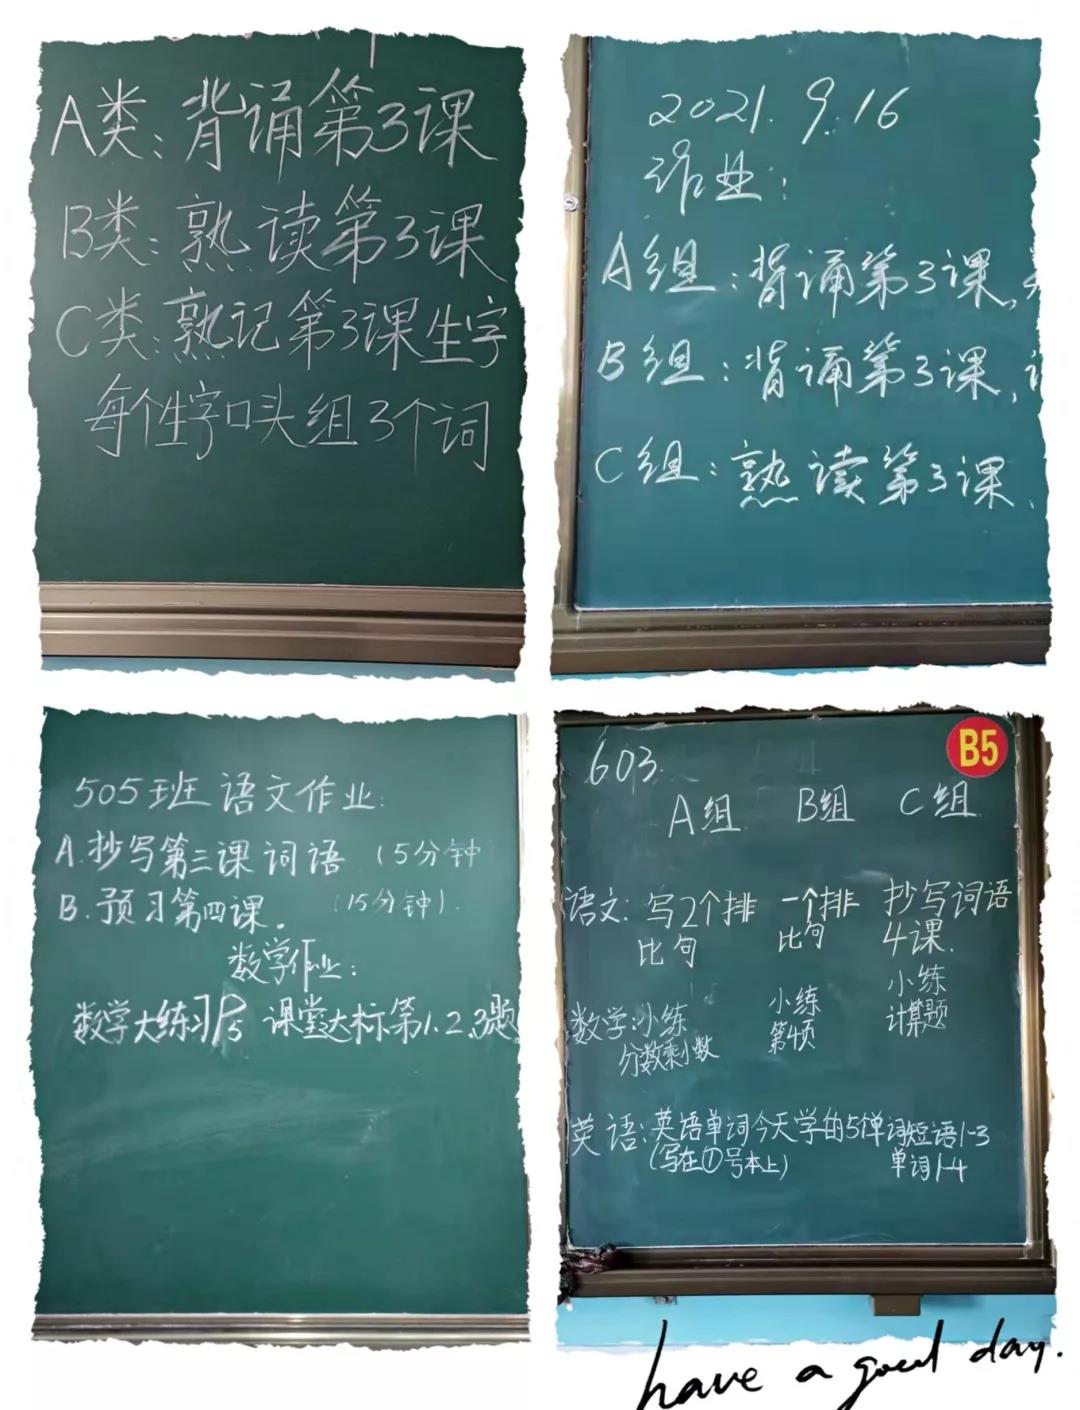 A类:背诵第3课
B类:熟读第3课
C类:熟记第3课生字
每个生字口头组3个词
2021.9.16
作业:
A组:背诵第3课,
B组:背诵第3课,
C组:熟读第3课.
505班 语文作业:
A.抄写第三课词语 (5分钟
B.预习第四课. (15分钟).
数学作业:
数学大练习P5 课堂达标第1.2.3题
603.
B5
A组 B组 C组
语文: 写2个排比句 一个排比句 抄写词语4课.
数学:小练 分数乘小数 小练 第4页 小练 计算题
英语:英语单词今天学的5个单词 短语1-3
(写在①号本上) 单词1-4
have a good day.